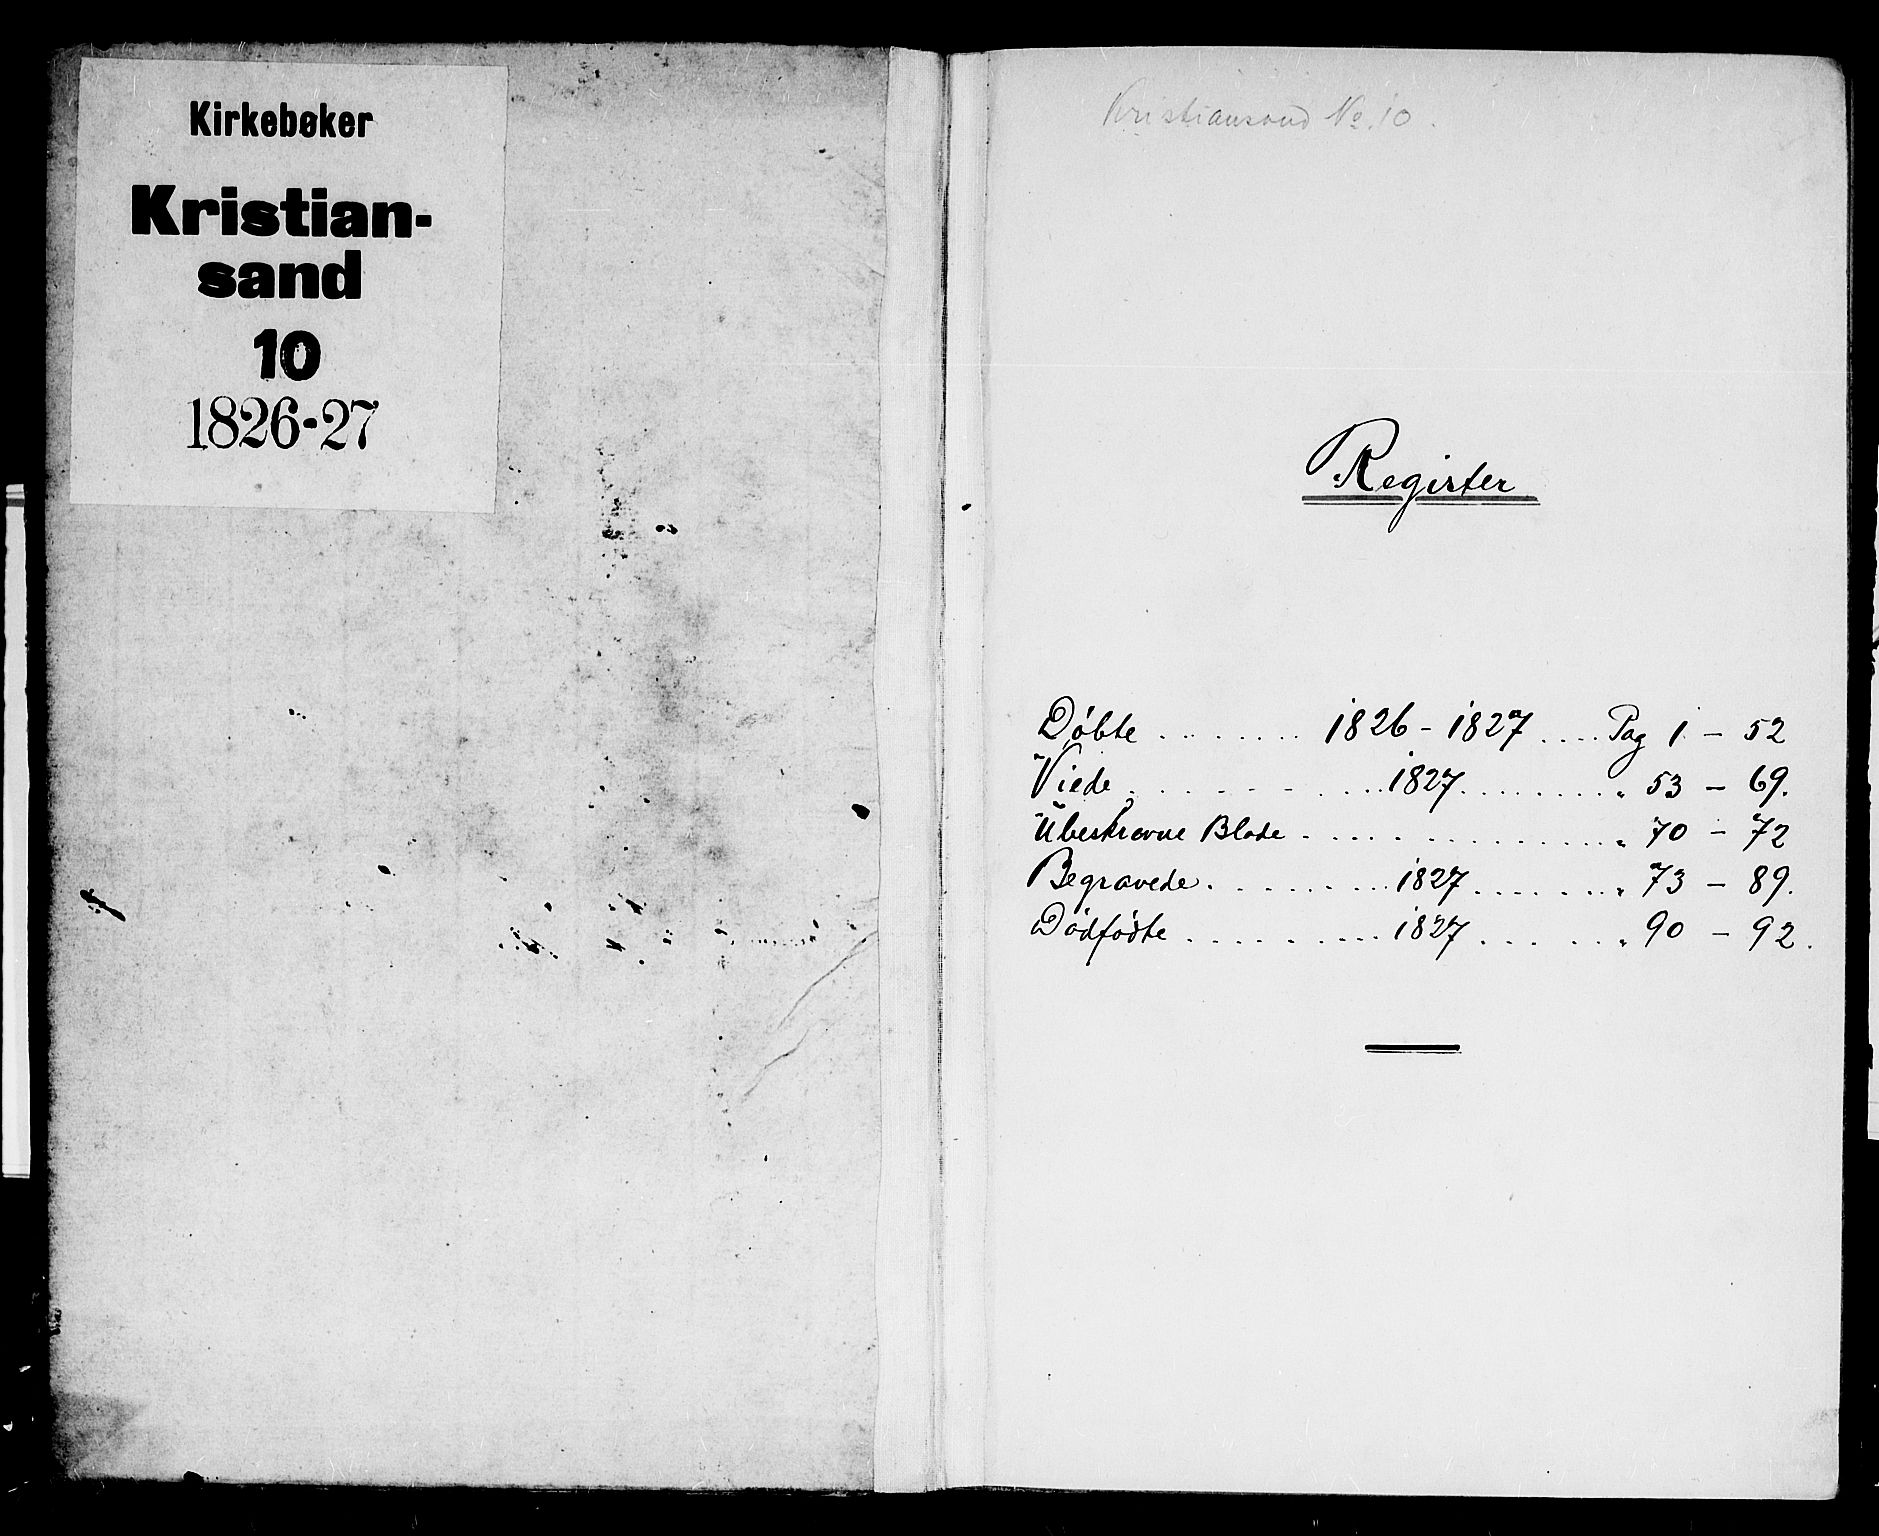 Kirkebøker
Kristian-
sand
10
1826-27
Kristiansand No. 10.
Register
Döbte ........ 1826 - 1827 .... Pag 1 - 52
Viede ............ 1827 ........ " 53 - 69.
Ubeskrevne Blade ................ " 70 - 72
Begravede ........... 1827 ........ " 73 - 89.
Dödfödte ........... 1827 ........ " 90 - 92.